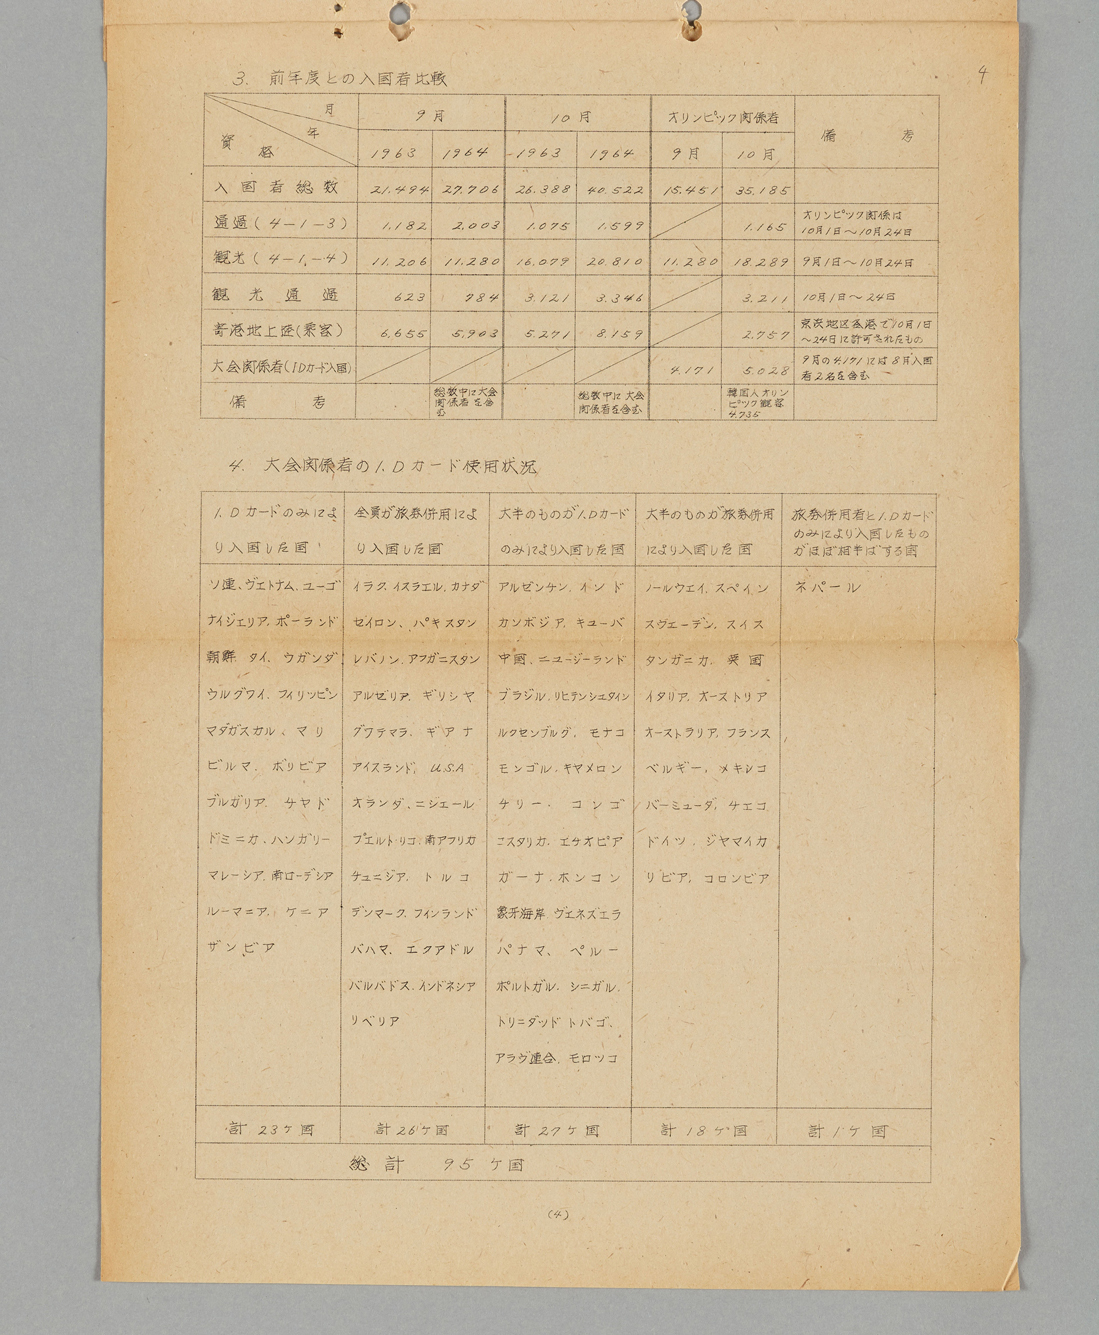 4
3. 前年度との入国者比較
月 年 資格 9月 10月 オリンピック関係者 備考
1963 1964 1963 1964 9月 10月
入国者総数 21.494 27.706 26.388 40.522 15.451 35.185
通過(4-1-3) 1.182 2.003 1.075 1.599 1.165 オリンピック関係は
10月1日～10月24日
観光(4-1-4) 11.206 11.280 16.079 20.810 11.280 18.289 9月1日～10月24日
観光通過 623 784 3.121 3.346 3.211 10月1日～24日
寄港地上陸(乗客) 6.655 5.903 5.271 8.159 2.757 京浜地区各港で10月1日
～24日に許可されたもの
大会関係者(IDカード入国) 4.171 5.028 9月の4.171には8月入国
者2名を含む
備考 総数中に大会 総数中に大会 韓国人オリン
関係者を含 関係者を含む ピック観客
む 4.735
4. 大会関係者のI.Dカード使用状況
I.Dカードのみによ 全員が旅券併用によ 大半のものがI.Dカード 大半のものが旅券併用 旅券併用者とI.Dカード
のみにより入国したもの
り入国した国 り入国した国 のみにより入国した国 により入国した国 がほぼ相半ばする国
ソ連、ヴェトナム、ユーゴ イラク、イスラエル、カナダ アルゼンチン、インド ノールウェイ、スペイン ネパール
ナイジェリア、ポーランド セイロン、パキスタン カンボジア、キューバ スヴェーデン、スイス
朝鮮 タイ、ウガンダ レバノン、アフガニスタン 中国、ニュージーランド タンガニカ、英国
ウルグワイ、フィリッピン アルゼリア、ギリシヤ ブラジル、リヒテンシュタイン イタリア、オーストリア
マダガスカル、マリ グワテマラ、ギアナ ルクセンブルグ、モナコ オーストラリア、フランス
ビルマ、ボリビア アイスランド、U.S.A モンゴル、キヤメロン ベルギー、メキシコ
ブルガリア、チヤド オランダ、ニジェール チリー、コンゴ バーミューダ、チエコ
ドミニカ、ハンガリー プエルトリコ、南アフリカ コスタリカ、エチオピア ドイツ、ジヤマイカ
マレーシア、南ローデシア チュニジア、トルコ ガーナ、ホンコン リビア、コロンビア
ルーマニア、ケニア デンマーク、フィンランド 象牙海岸 ヴェネズエラ
ザンビア バハマ、エクアドル パナマ、ペルー
バルバドス、インドネシア ポルトガル、シニガル、
リベリア トリニダッドトバゴ、
アラヴ連合、モロッコ
計23ケ国 計26ケ国 計27ケ国 計18ケ国 計1ケ国
総計 95ケ国
(4)